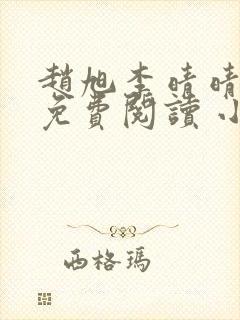 趙旭李晴晴
免費閱讀小
西格瑪